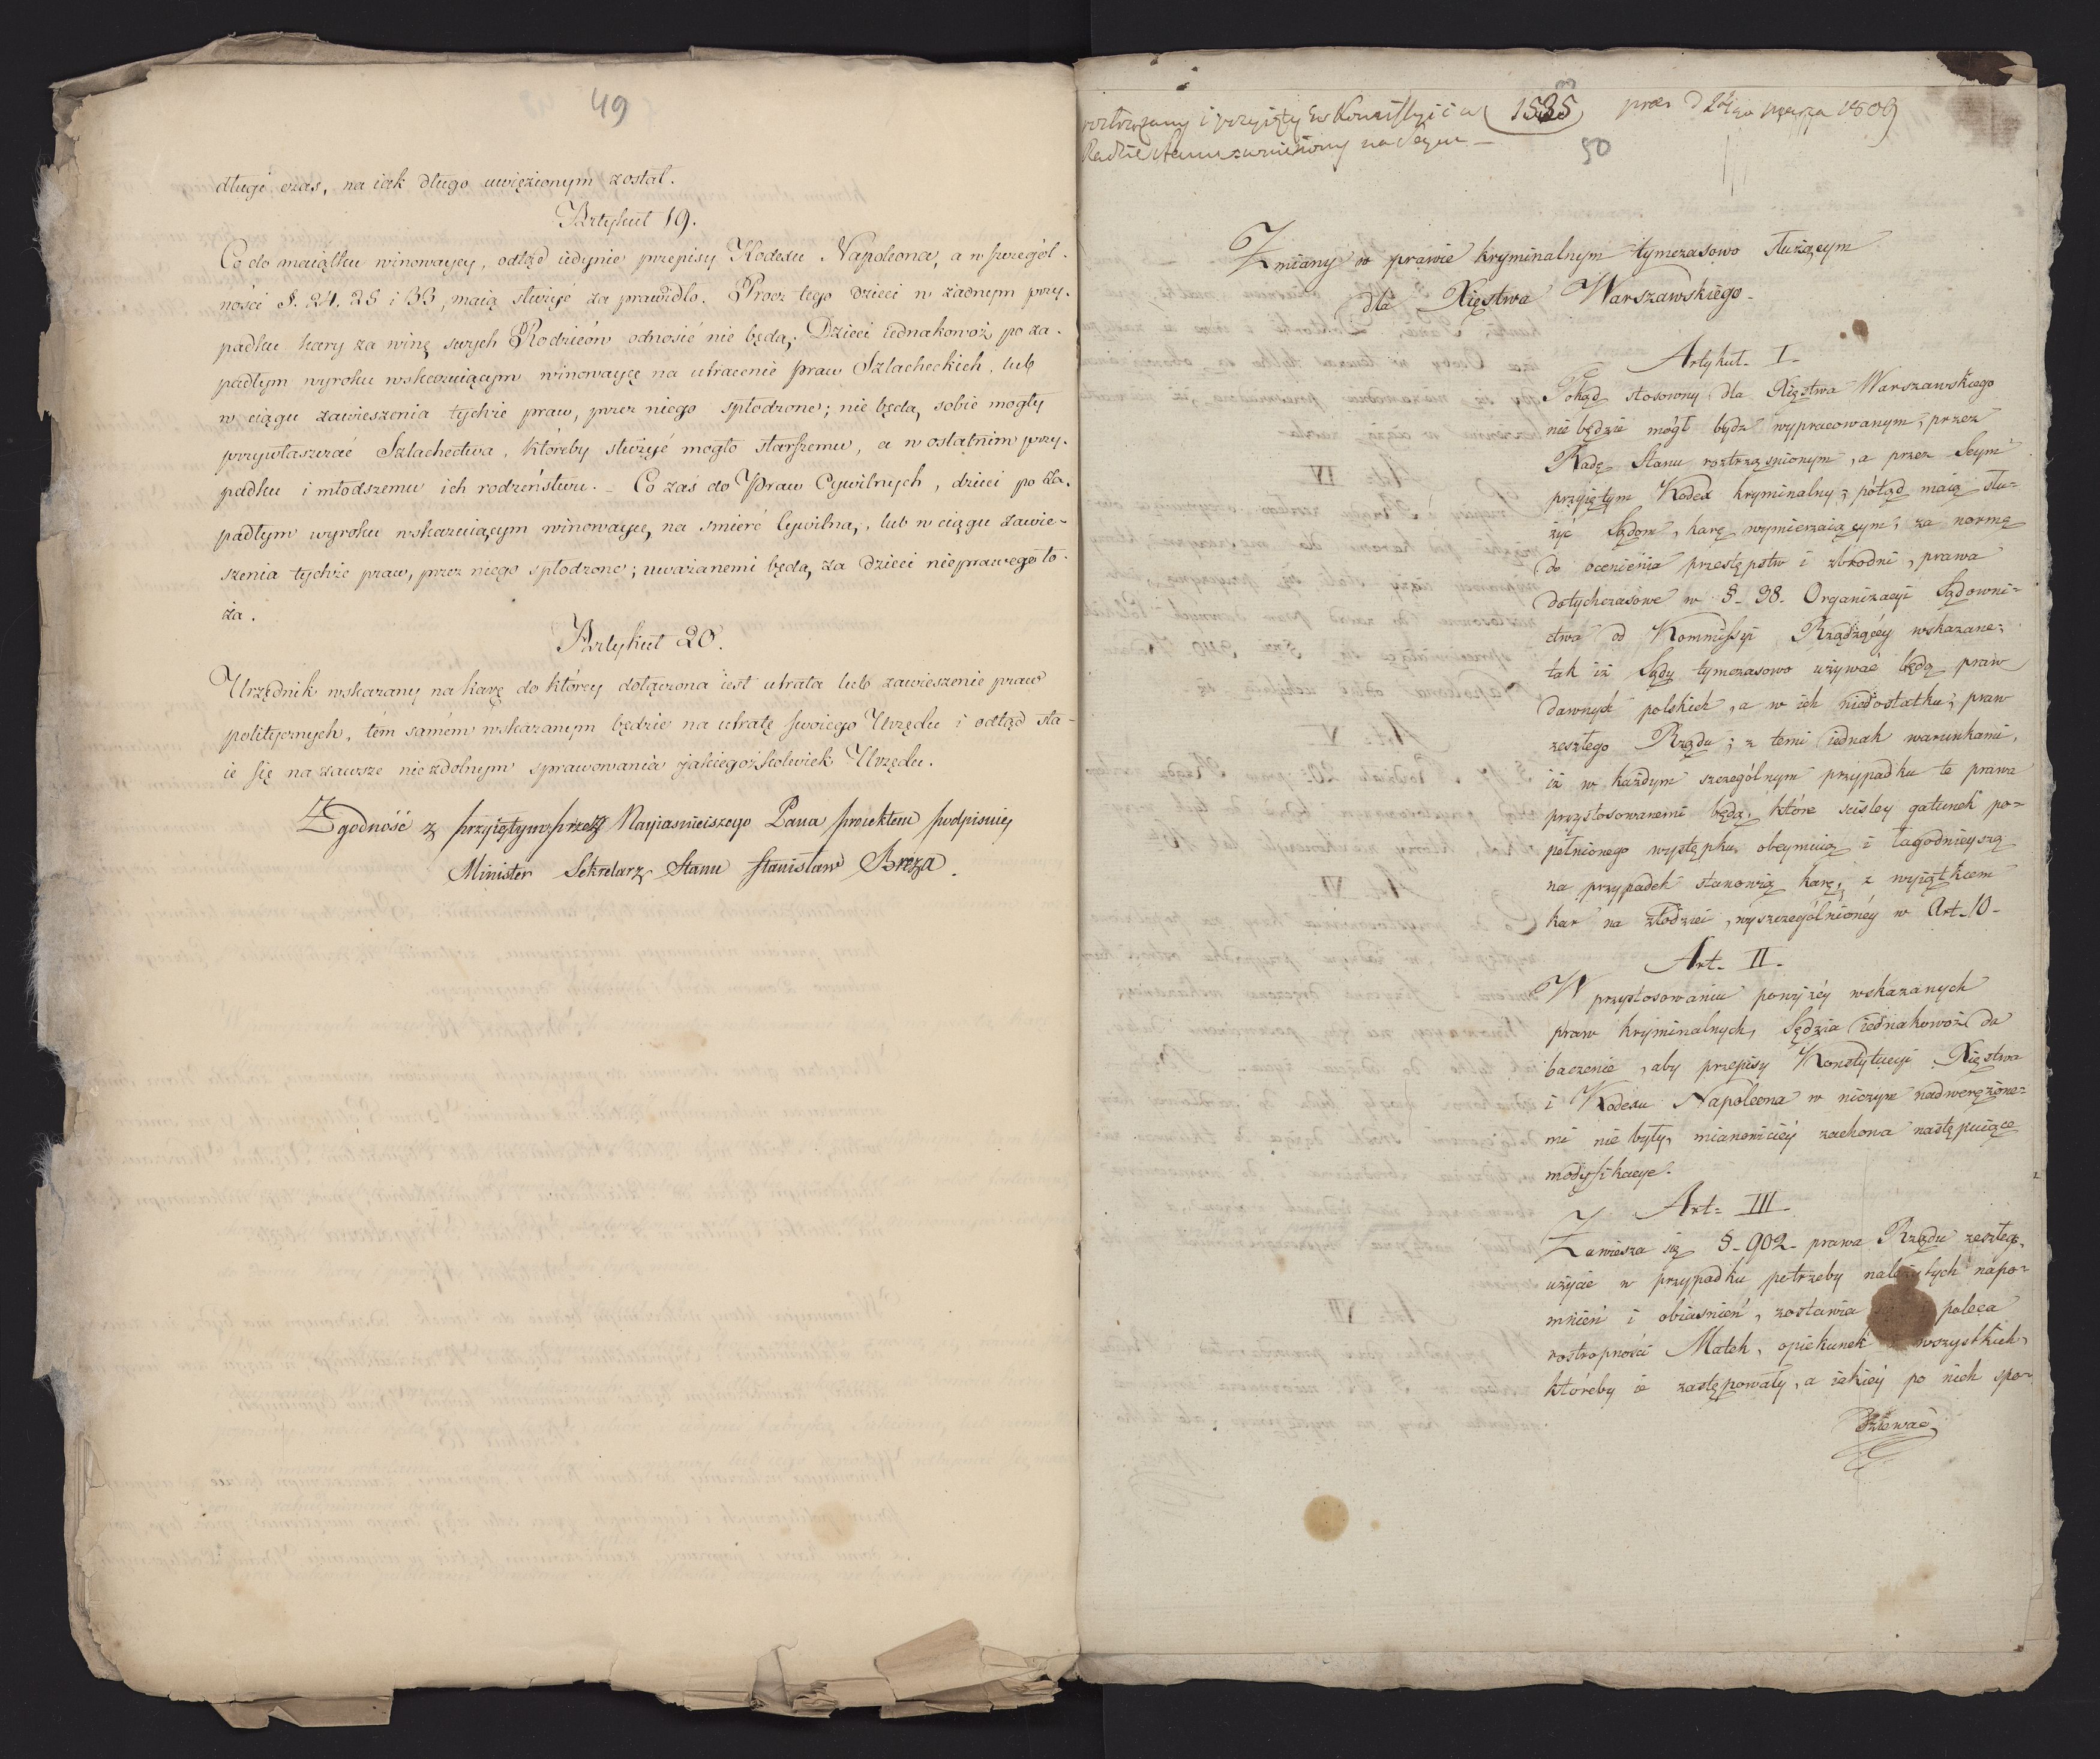 49
długi czas, na iak długo uwięzionym został.
Artykuł 19.
Co do maiątku winowaycy, odtąd iedynie przepisy Kodexu Napoleona, a w szczegól-
ności §. 24. 25 i 33, maią służyć za prawidło. Procz tego dzieci w żadnym przy-
padku kary za winę swych Rodzicow odnosić nie będą. Dzieci iednakowoż po za-
padłym wyroku wskazuiącym winowaycę na utracenie praw Szlacheckich, lub
w ciągu zawieszenia tychże praw, przez niego spłodzone; nie będą sobie mogły
przywłaszczać Szlachectwa, któreby służyć mogło starszemu, a w ostatnim przy-
padku i młodszemu ich rodzeństwu. _ Co zaś do Praw Cywilnych, dzieci po za-
padłym wyroku wskazuiącym winowaycę, na smierć Cywilną, lub w ciągu zawie-
szenia tychże praw, przez niego spłodzone; uważanemi będą, za dzieci nieprawego ło-
ża.
Artykuł 20.
Urzędnik wskazany na karę do któréy dołączona iest utrata lub zawieszenie praw
politycznych, tém samém wskazanym będzie na utratę swoiego Urzędu i odtąd sta-
ie się na zawsze niezdolnym sprawowania jakiegożkolwiek Urzędu.
Zgodność z przyiętym przez Nayiasnieiszego Pana proiektem podpisuię
Minister Sekretarz Stanu Stanisław Breza.
roztrząsany i przyięty w Kommissyi i w
1535
prez d 24go Marca 1809
Radzie Stanu wniesiony na Seym _
50
Zmiany w prawie kryminalnym tymczasowo służącym
dla Xięstwa Warszawskiego-
Artykuł- I-
Pokąd stosowny dla Xięstwa Warszawskiego
nie będzie mógł bydź wypracowanym, przez
Radę Stanu roztrząsnionym, a przez Seym
przyiętym Kodex kryminalny; pótąd maią słu-
żyć Sądom, karę wymierzaiącym, za normę
do ocenienia przestępstw i zbrodni, prawa
dotychczasowe w §- 38- Organizacyi Sądowni-
ctwa od Kommissyi Rządzącey wskazane;
tak iż Sądy tymczasowo używać będą praw
dawnych polskich, a w ich niedostatku, praw
zeszłego Rządu; z temi iednak warunkami,
iż w każdym szczególnym przypadku te prawa
przystosowanemi będą, które scisley gatunek po-
pełnionego występku obeymuią i łagodnieyszą
na przypadek stanowią karę, z wyiątkiem
kar na złodziei, wyszczególnionéy w Art-10-
Art- II-
W przystosowaniu powyżéy wskazanych
praw kryminalnych, Sędzia iednakowoż da
baczenie, aby przepisy Konstytucyi Xięstwa
i Kodexu Napoleona w niczym nadwerężone-
mi nie były, mianowiciéy zachowa następuiące
modyfikacye.
Art- III-
Zawiesza się §- 902- prawa Rządu zeszłego,
użycie w przypadku potrzeby należytych napo-
mnień i obiasnień, zostawia poleca
rostropności Matek, opiekunek i wszystkich,
któreby ie zastępowały, a iakiéy po nich spo-
dziewać